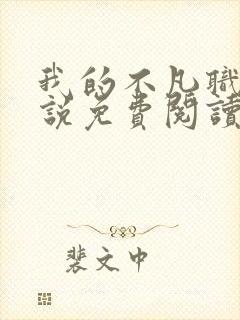 我的不凡職
說免費閱讀
裴文中